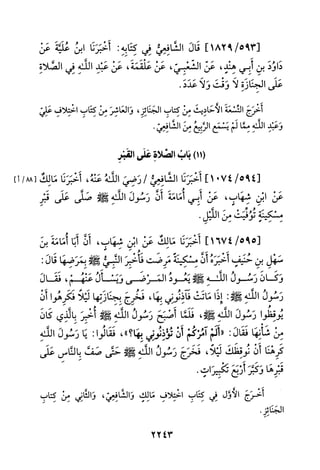 [١٨٢٩/٥٩٣] قَالَ الشَّافِعِيُّ فِي كِتَابِهِ: أَخْبَرَنَا ابنُ عُلَيَّةَ عَنْ
دَاوُدَ بنِ أَبِي هِنْدٍ، عَنِ الشَّعْبِيِّ، عَنْ عَلْقَمَةَ، عَنْ عَبْدِ اللَّهِ فِي الصَّلاةِ
عَلَى الجِنَازَةِ لَا وَقْتَ وَلَا عَدَدَ.
أَخْرَجَ التِّسْعَةَ الأَحَادِيثَ مِنْ كِتابِ الجَنَائِزِ، وَالعَاشِرَ مِنْ كِتَابِ اخْتِلافِ عَلِيّ
وَعَبْدِ اللَّهِ مِمَّا لَمْ يَسْمَعِ الرَّبِيعُ مِنَ الشَّافِعِيِّ.
(١١) بَابُ الصَّلاةِ عَلَى القَبْرِ
[١٠٧٤/٥٩٤] أَخْبَرَنَا الشَّافِعِيُّ / رَضِيَ اللَّهُ عَنْهُ، أَخْبَرَنَا مَالِكٌ [٨٨/أ]
عَنْ ابْنِ شِهَابٍ، عَنْ أَبِي أُمَامَةَ أَنَّ رَسُولَ اللَّهِ ﷺ صَلَّى عَلَى قَبْرِ
مِسْكِينَةٍ تُوُفِّيَتْ مِنَ اللَّيْلِ.
[١٦٧٤/٥٩٥] أَخْبَرَنَا مَالِكٌ عَنْ ابْنِ شِهَابٍ، أَنَّ أَبَا أُمَامَةَ بنَ
سَهْلِ بنِ حُنَيفٍ أَخْبَرَهُ أَنَّ مِسْكِينَةً مَرِضَت فَأُخْبِرَ النَّبِيُّ ﷺ بِمَرَضِهَا قَالَ:
وَكَانَ رَسُولُ اللَّهِ ﷺ يَعُودُ المَرْضَى وَيَسْأَلُ عَنْهُمْ، فَقَالَ
رَسُولُ اللَّهِ ﷺ: إِذَا مَاتَتْ فَآذِنُونِي بِهَا، فَخُرِجَ بِجِنَازَتِهَا لَيْلًا فَكَرِهُوا أَنْ
يُوقِظُوا رَسُولَ اللَّهِ ﷺ، فَلَمَّا أَصْبَحَ رَسُولُ اللَّهِ ﷺ أُخْبِرَ بِالَّذِي كَانَ
مِنْ شَأْنِهَا فَقَالَ: «أَلَمْ آمُرْكُمْ أَنْ تُؤْذِنُونِي بِهَا؟» فَقَالُوا: يَا رَسُولَ اللَّهِ
كَرِهْنَا أَنْ نُوقِظَكَ لَيْلًا، فَخَرَجَ رَسُولُ اللَّهِ ﷺ حَتَّى صَفَّ بِالنَّاسِ عَلَى
قَبْرِهَا وَكَبَّرَ أَرْبَعَ تَكْبِيرَاتٍ.
أَخْرَجَ الأَوَّلَ فِي كِتَابِ اخْتِلافِ مَالِكٍ وَالشَّافِعِيّ، وَالثَّانِي مِنْ كِتابِ
الجَنَائِزِ.
٢٢٤٣